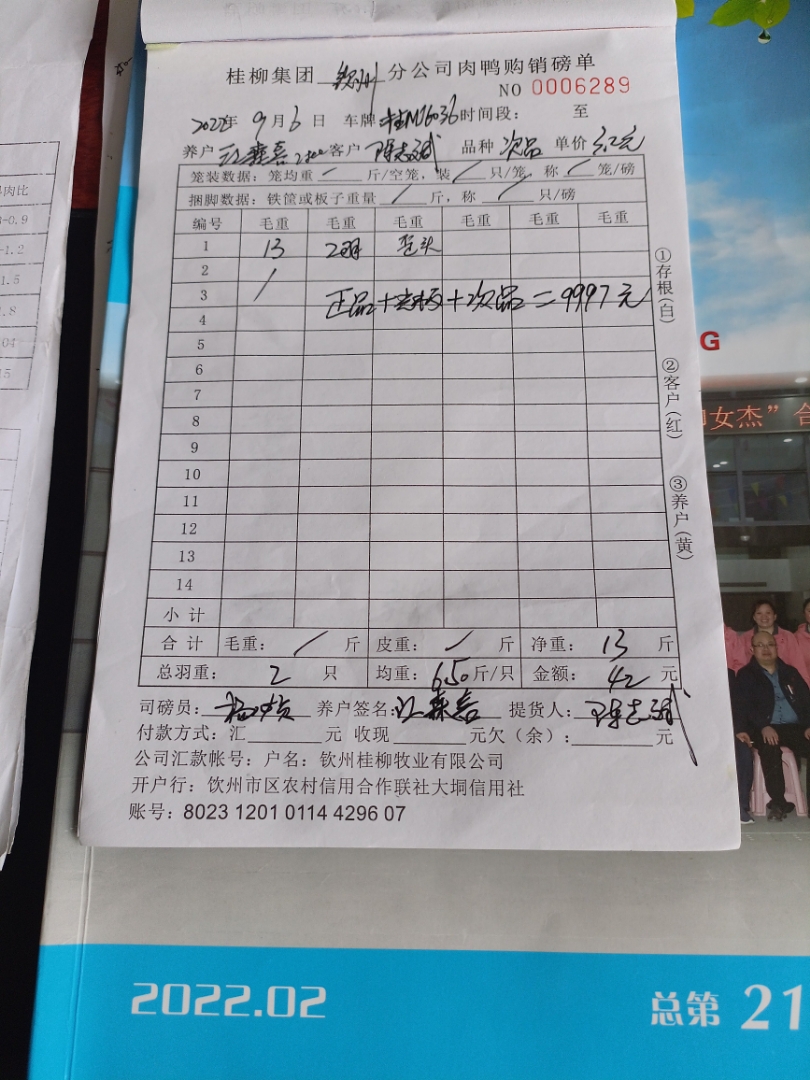 桂柳集团 钦州 分公司肉鸭购销磅单
NO 0006289
2022年 9月6日 车牌 桂M16036 时间段: 至
养户 江森喜 客户 陈志斌 品种 次品 单价 3.2元
笼装数据: 笼均重 / 斤/空笼, 装 / 只/笼, 称 / 笼/磅
捆脚数据: 铁筐或板子重量 / 斤, 称 / 只/磅
编号 毛重 毛重 毛重 毛重 毛重 毛重
1 13 2羽
2 /
3 正品+ +次品=9997元
4
5
6
7
8
9
10
11
12
13
14
小计
合计 毛重: / 斤 皮重: / 斤 净重: 13 斤
总羽重: 2 只 均重: 6.50 斤/只 金额: 42 元
司磅员: 养户签名: 江森喜 提货人: 陈志斌
付款方式: 汇 元 收现 元欠(余): 元
公司汇款帐号: 户名: 钦州桂柳牧业有限公司
开户行: 钦州市区农村信用合作联社大垌信用社
账号: 8023 1201 0114 4296 07
①存根(白)
②客户(红)
③养户(黄)
肉比
-0.9
-1.2
1.5
.8
04
15
G
女杰”合
2022.02
总第 21